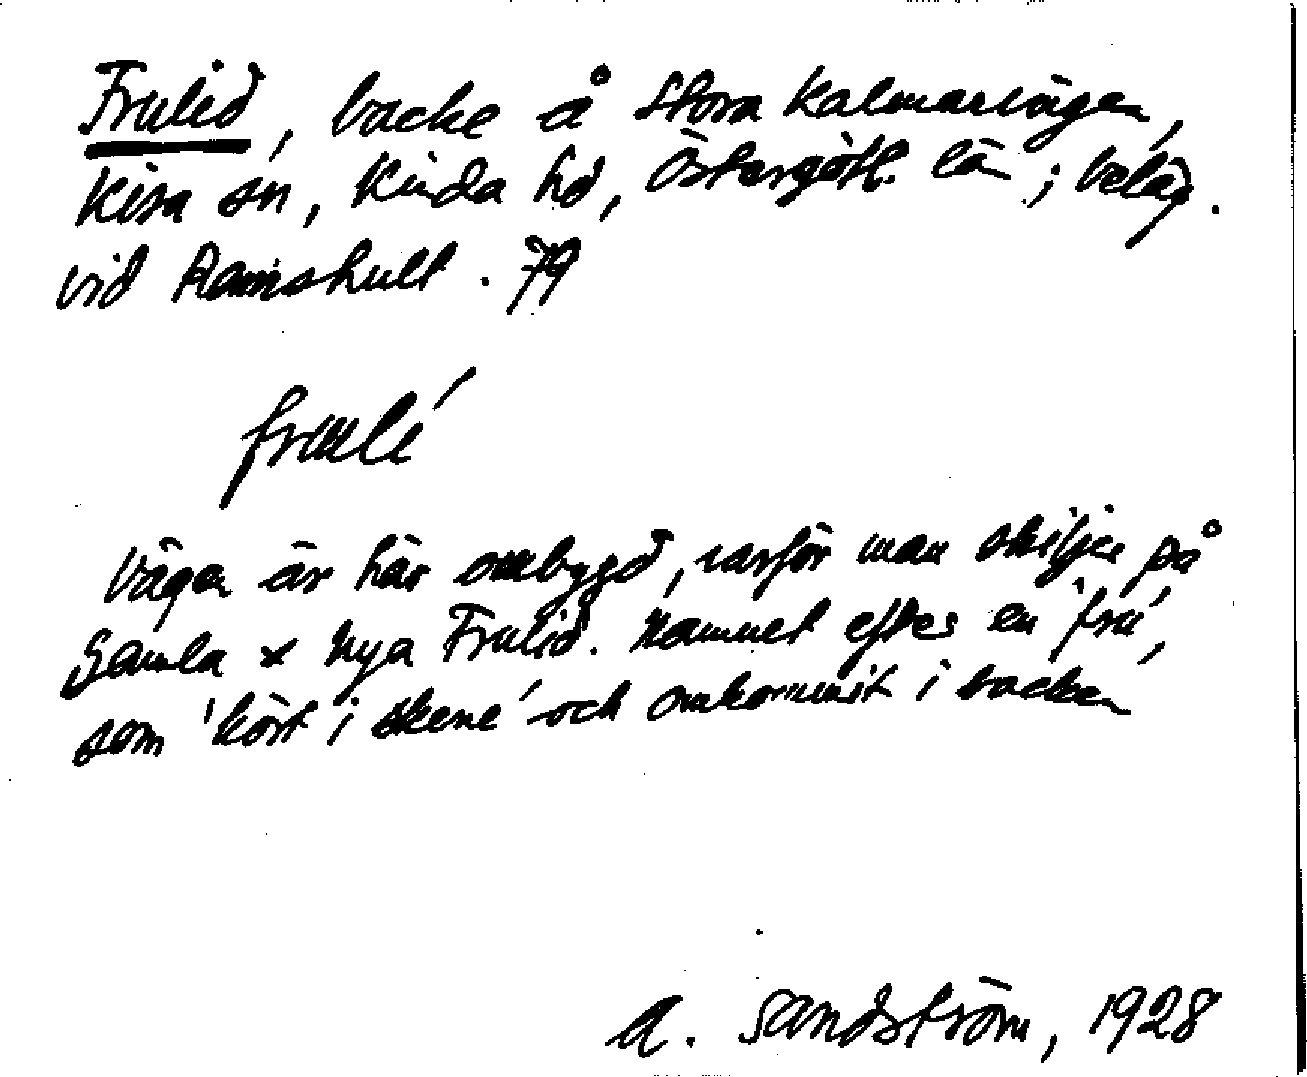 Frulid, backe å Stora Kalmarvägen,
Kisa sn, Kinda hd, Östergötl. län; beläg.
vid Ramshult. 79
frulé
Vägen är här ombyggd, varför man skiljer på
Gamla & Nya Frulid. Namnet efter en 'fru',
som 'kört i skene' och omkommit i backen
A. Sandström, 1928